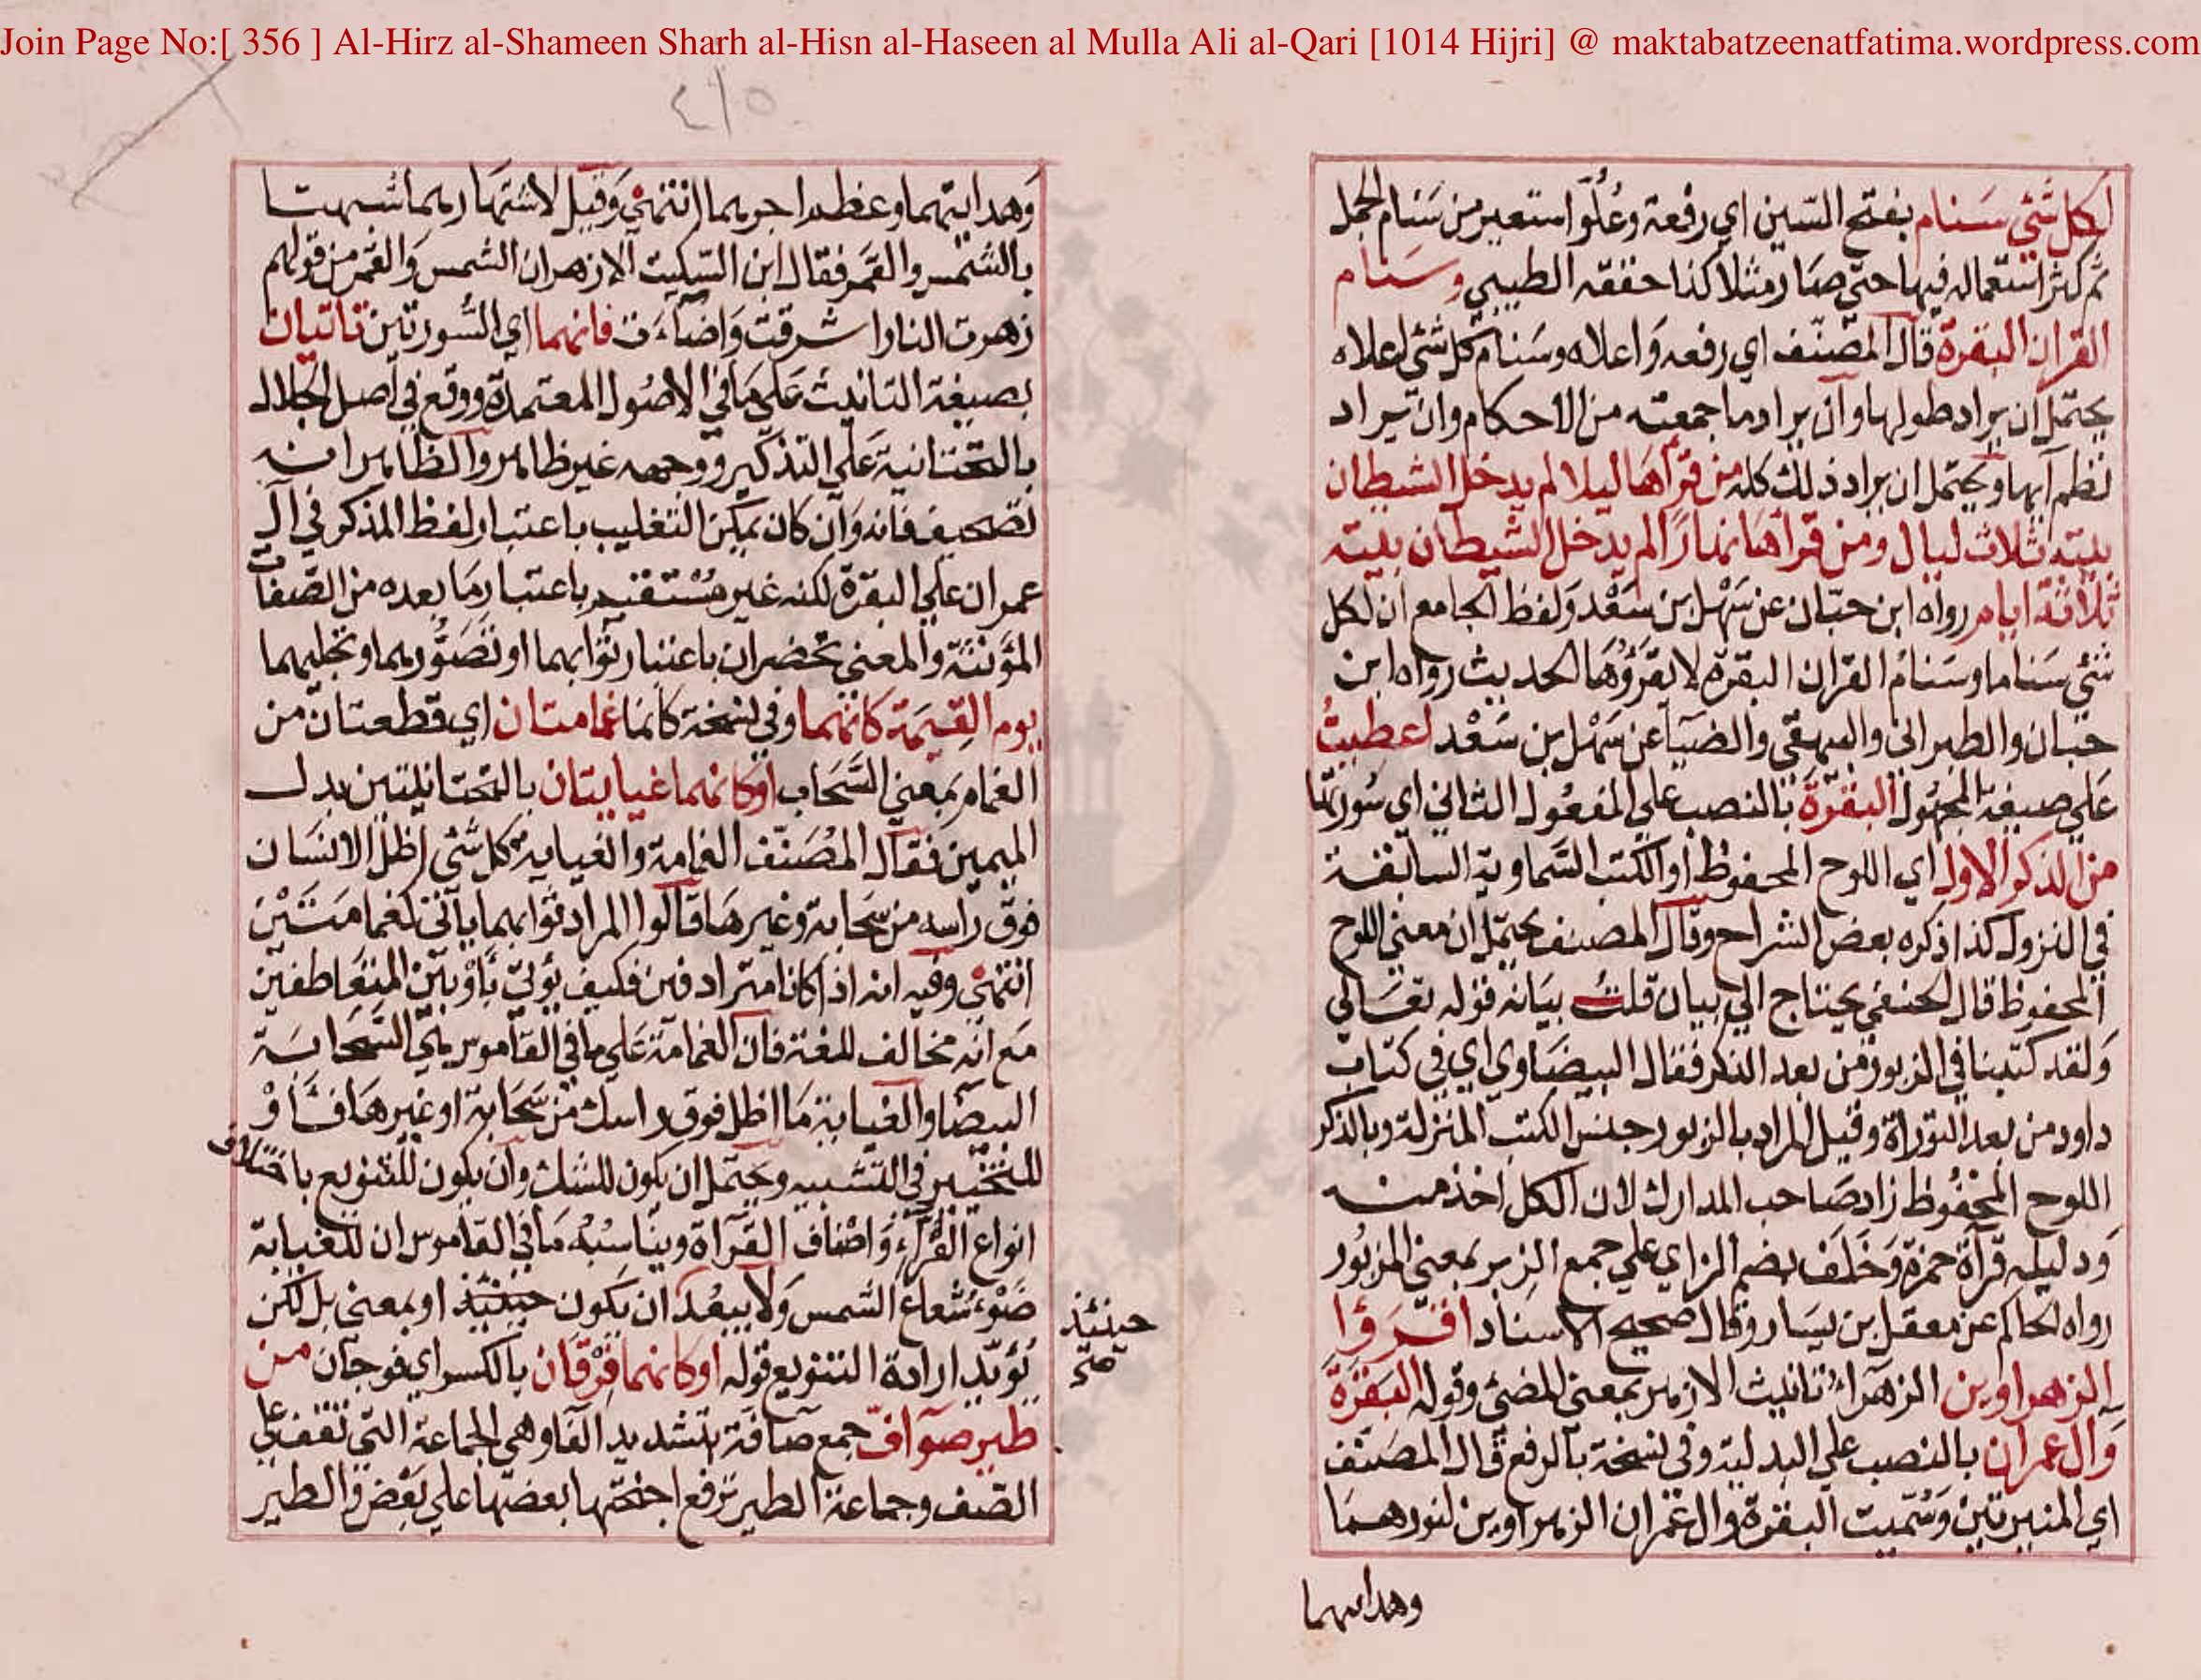 Join Page No:[ 356 ] Al-Hirz al-Shameen Sharh al-Hisn al-Haseen al Mulla Ali al-Qari [1014 Hijri] @ maktabatzeenatfatima.wordpress.com
٤١٥
لكل شئ سنام بفتح السين اي رفعة وعُلُوّ استعير من سَنام الجمل
ثم كثر استعماله فيها حتى صار مثلا كذا حققه الطيبي وسنام
القران البقرة قال المصنّف اي رفعه وَاعلاه وسَنام كل شئ اعلاه
يحتمل ان يراد طولها وان يراد ما جمعته من الاحكام وان يراد
نظم آيها ويحتمل ان يراد ذلك كله من قرأها ليلا لم يدخل الشيطان
بيته ثلاث ليال ومن قرأها نهارًا لم يدخل الشيطان بيته
ثلاثة ايام رواه ابن حبّان عن سَهْل بن سَعْد وَلفظ الجامع ان لكل
شئ سَناما وسَنامُ القران البقرة لا يقرؤها الحديث رواه ابن
حبان والطبراني والبيهقي والضيَا عن سَهْل بن سَعْد اعطيتُ
عَلى صيغة المجهول البقرةَ بالنصب على المفعُول الثاني اي سُورتها
من الذكر الاول اي اللوح المحفوظ او الكتب السَّماوية السابقة
في النزول كذا ذكره بعض الشراح وقال المصنف يحتمل ان معنى اللوح
المحفوظ قال الحنفي يحتاج الى بيان قلت بيَانه قوله تعَالى
وَلقد كتبنا في الزبور من بعد الذكر فقال البيضَاوي اي في كتاب
داود من بعد التوراة وقيل المراد بالزبور جنس الكتب المنزلة وبالذكر
اللوح المحفُوظ زاد صَاحب المدارك لان الكل اخذ منه
وَدليله قرآة حمزة وَخَلَف بضم الزاي على جمع الزبر بمعنى المزبُور
رواه الحاكم عن معقل بن يسَار وقال صحيح الاسناد اقرؤا
الزهراوين الزهراءُ تانيث الازهر بمعنى المضئ وقوله البَقرةَ
وَال عمران بالنصب على البدلية وفي نسخة بالرفع قال المصَنّف
اي المنيرتَين وَسُمّيت البقرة وال عمران الزهراوين لنورهما
وهدايتهما
وَهدايتهما وعظم اجرهما انتهى وَقيل لاشتهارهما شبهت
بالشمس والقمر فقال ابن السّكيت الازهران الشمس وَالقمر من قولهم
زهرت النار اشرقت وَاضآءَت فانهما اي السُّورتَين تاتيان
بصيغة التانيث عَلى مَا في الاصُول المعتمدة ووقع في اصل الجلال
بالتحتانية عَلى التذكير ووجهه غير ظاهر والظاهر انه
تصحيف فانه وَان كان يمكن التغليب باعتبار لفظ المذكر في ال
عمران على البقرة لكنه غير مُسْتقيم باعتبار مَا بعده من الصّفات
المؤنثة والمعنى تحضران باعتبار ثوابهما او تصَوُّرهما وتجليهما
يوم القيمة كانهما وفي نسخة كانما غمامتان اي قطعتان من
الغمام بمَعنى السَّحَاب او كانهما غيايتان بالتحتانيتين بدل
الميمين فقال المُصَنّف الغمامة والغياية كل شئ اظل الانسَان
فوق راسه من سَحابة وغيرهَا قالوا المراد ثوابهما ياتي كغمامَتَيْن
انتهى وفيه انه اذا كانا مترادفين فكيف يؤتى بأوْ بين المتعَاطفين
مَع انه مخالف للغة فان الغمامة عَلى ما في القاموس هي السَّحابَة
البيضَا والغياية مَا اظل فوق راسك من سَحَابة او غيرهَا فَأَوْ
للتخيير في التشبيه ويحتمل ان يكون للشك وان يكون للتنويع باختلاف
انواع القُرّاءِ وَاصْناف القرآة ويناسبُهُ مَا في القاموس ان للغياية
ضَوْءَ شُعاع الشمس وَلا يبعُد ان يَكون حينئذ او بمعنى بل لكن
يُؤيّد ارادة التنويع قوله او كانهما فِرْقان بالكسر اي فوجان من
طير صوآفّ جمع صآفة بتشديد الفا وهى الجماعة التي تقف على
الصّف وجماعة الطير ترفع اجنحتها بعضها على بَعْض والطير
حينئذ
صح